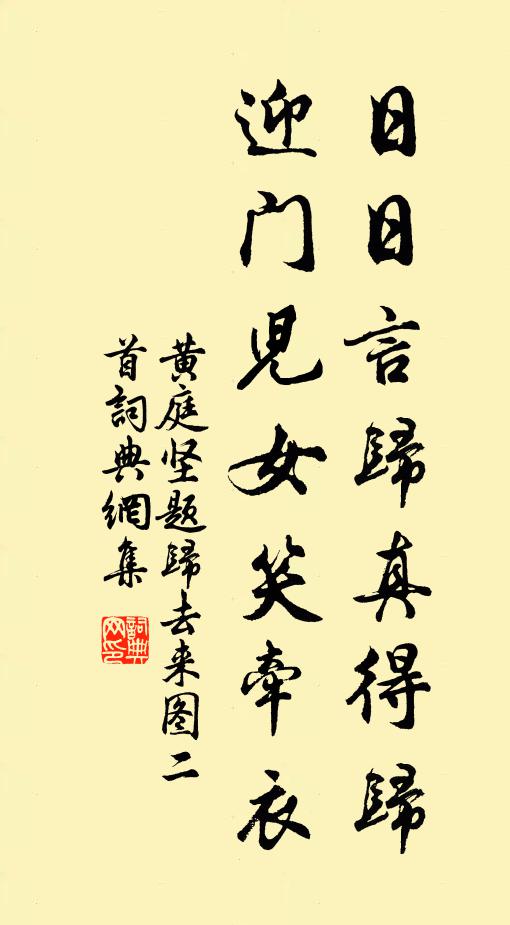 日日言歸真得歸
迎門児女笑牽衣
黄庭坚题歸去来图二
首詞典網集
詞典
网印